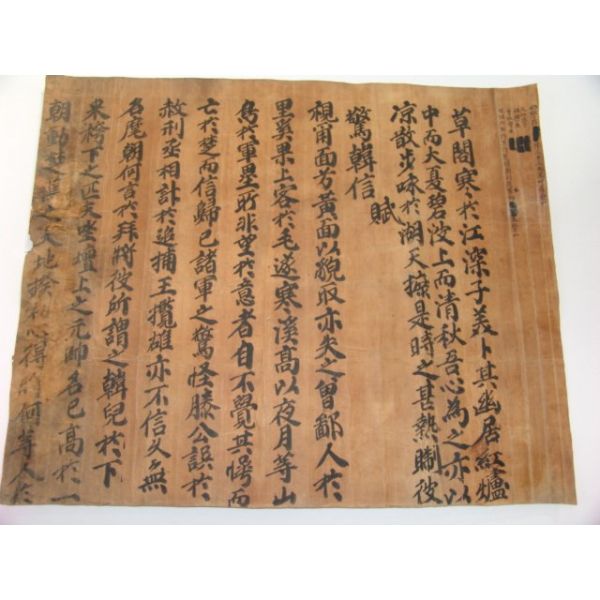 草閣寒於江深子美卜其幽居紅爐
中而大夏碧波上而清秋吾心為之亦以
凉散步咏於湖天擬是時之甚熱聊彼
驚韓信賦
視甯面方黃面以貌取亦失之曾鄙人於
里異果上客於毛遂寒溪高以夜月等山
鳥於軍星所非望於意者自不覺其愕而
亡於楚而信歸已諸軍之驚怪滕公誤於
赦刑丞相訃於追捕王攬雄亦不信久無
名麾朝何言於拜將彼所謂之韓兒於下
來橋下之匹夫坐壇上之元帥名已高於一
朝動之大地 心得 何等人